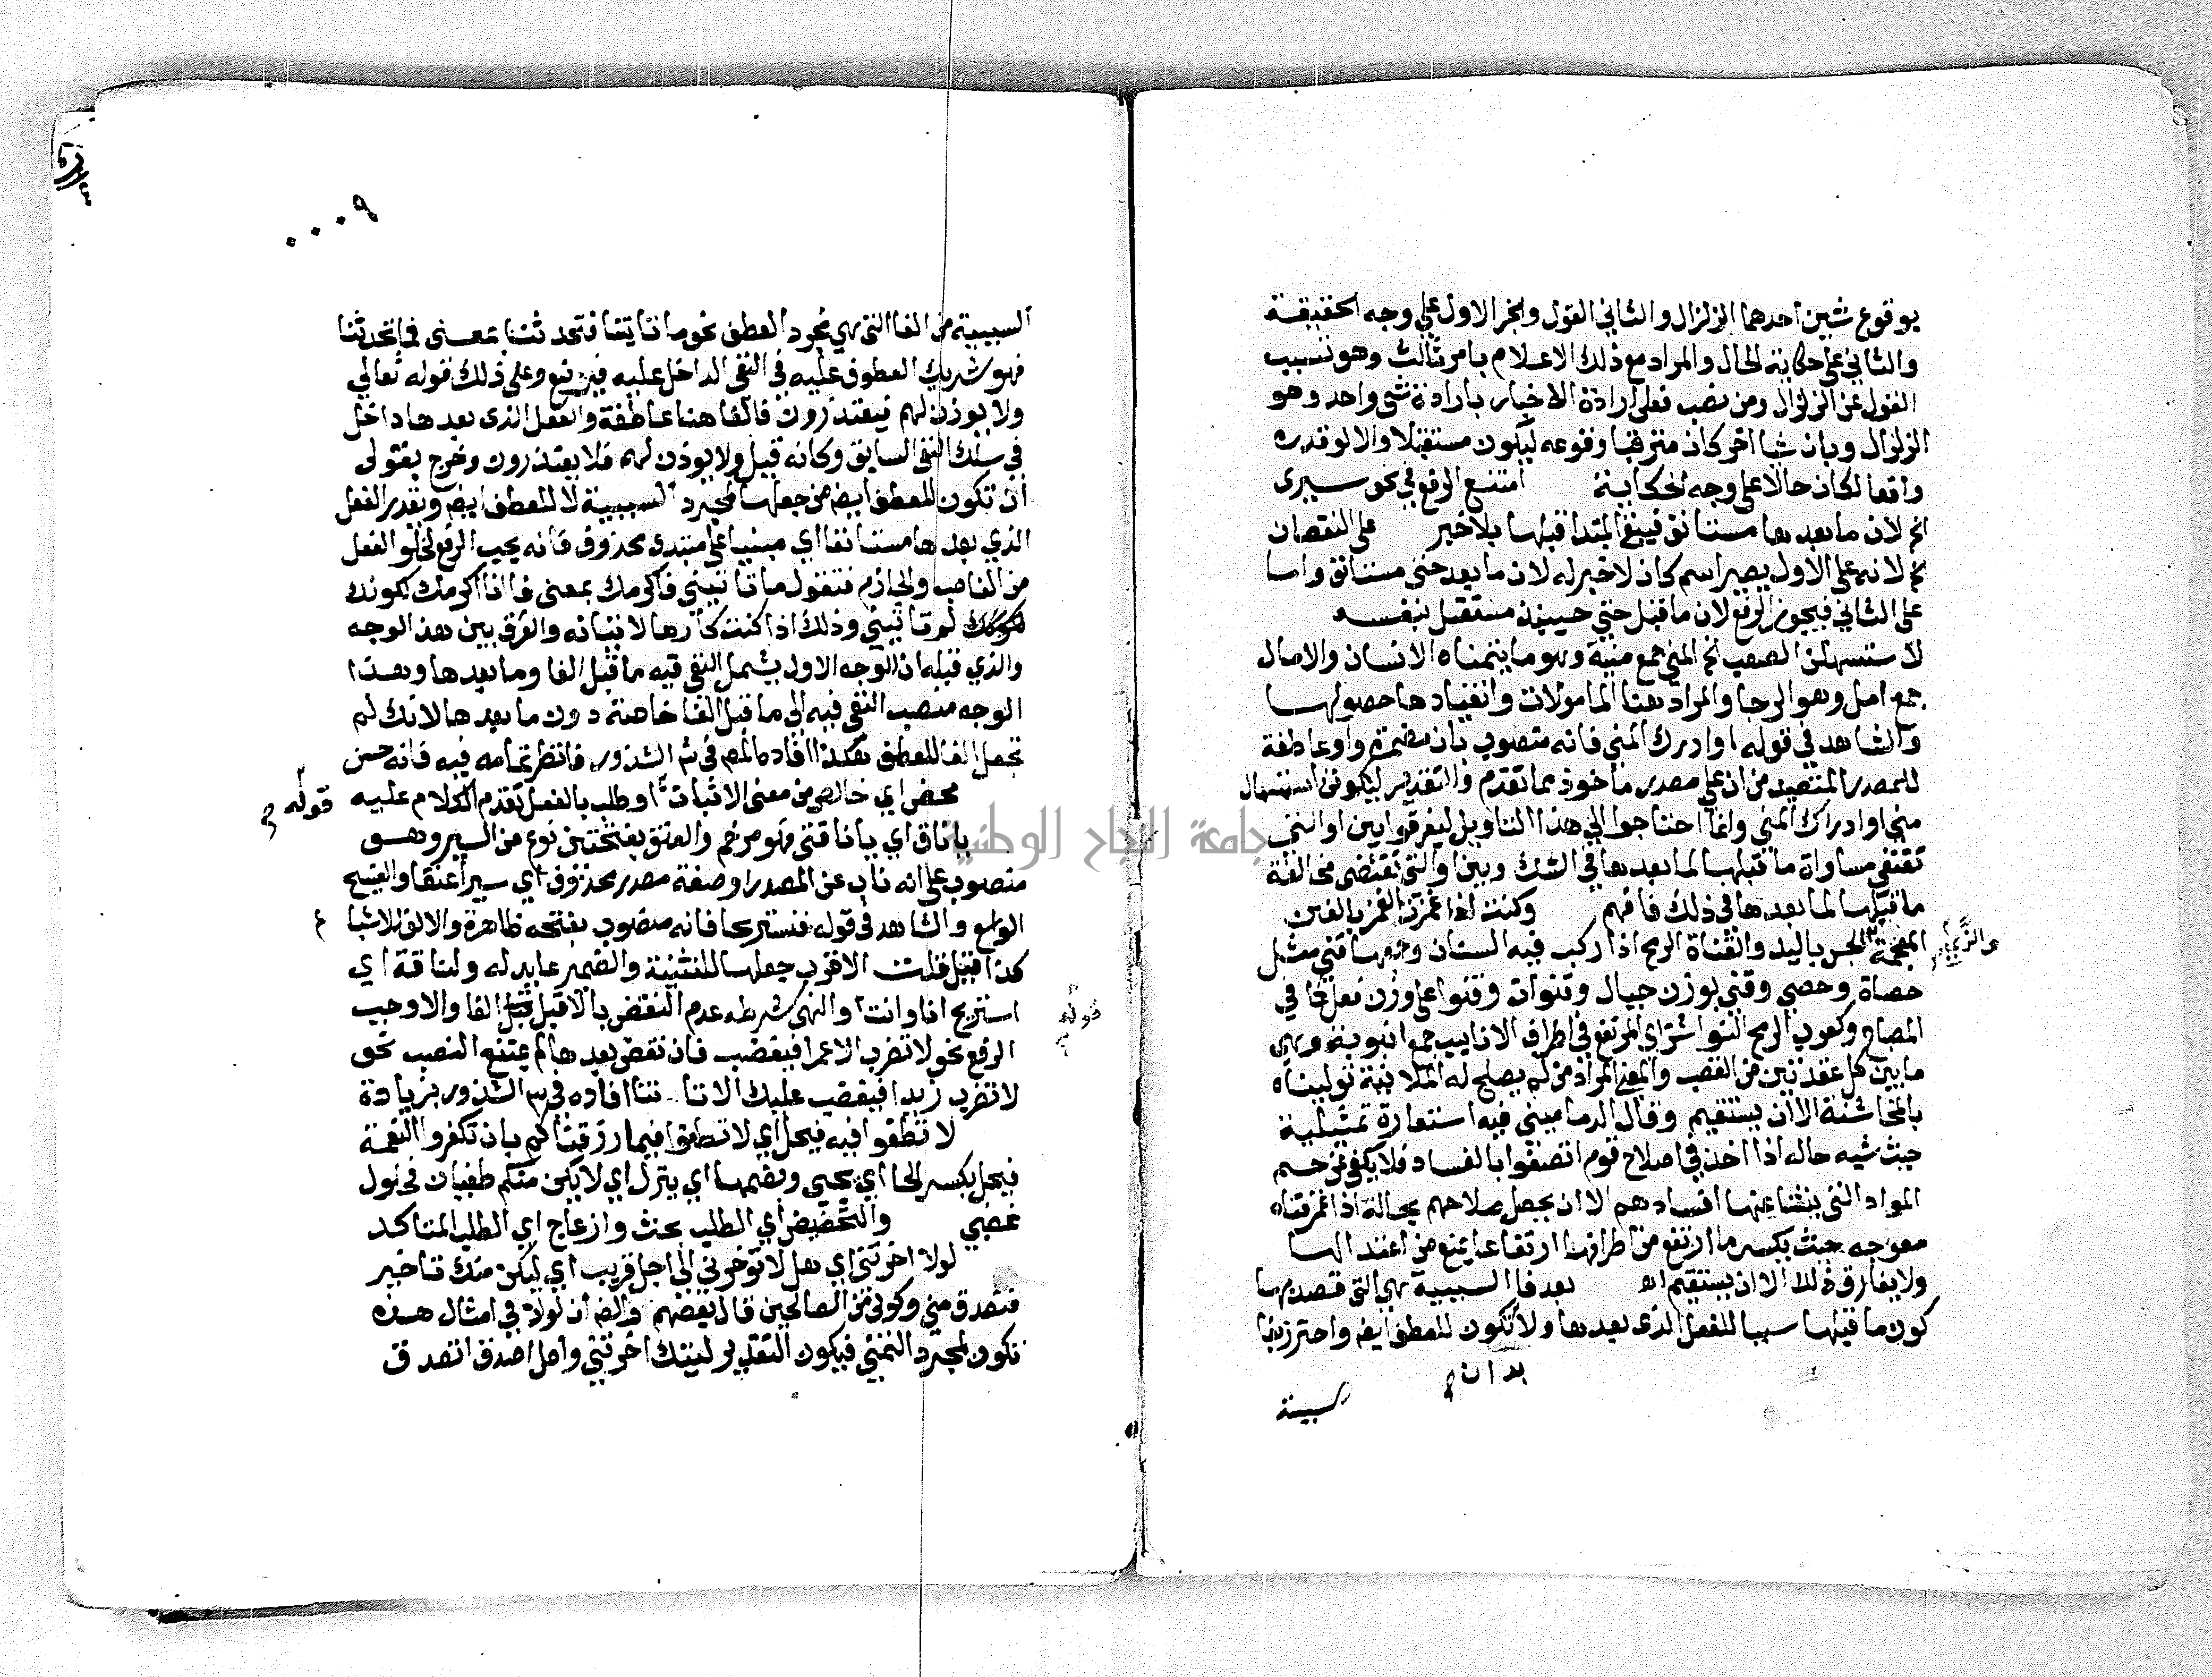 بوقوع شيين احدهما الزلزال والثاني القول والخبر الاول علي وجه الحقيقة
والثاني علي حكاية الحال والمراد مع ذلك الاعلام بامر ثالث وهو تسبب
القول عن الزلزال ومن نصب فعلي ارادة الاخبار بارادة شي واحد وهو
الزلزال وبان شيا اخر كان مترقبا وقوعه ليكون مستقبلا والا لو قدره
واقعا لكان حالا علي وجه الحكاية امتنع الرفع في نحو سيري
الخ لان ما بعدها مستانف فيبقي المبتدا قبلها بلا خبر علي النقصان
الخ لانه علي الاول يصير اسم كان لا خبر له لان ما بعد حتي مستانف واما
علي الثاني فيجوز الرفع لان ما قبل حتي حينيذ مستقل بنفسه
لاستسهلن الصعب الخ المني جمع منية وهو ما يتمناه الانسان والامال
جمع امل وهو الرجا والمراد هنا المامولات وانقيادها حصولها
والشاهد في قوله او ادرك المني فانه منصوب بان مضمرة واو عاطفة
للمصدر المتصيد من ان علي مصدر ماخوذ مما تقدم والتقدير ليكونن استسهال
مني او ادراك المني وانما احتاجوا الي هذا التاويل ليفرقوا بين او التي
تقتضي مساواة ما قبلها لما بعدها في الشك وبين او التي تقتضي مخالفة
ما قبلها لما بعدها في ذلك فافهم وكنت اذا غمزت الغمز بالغين
المعجمة الجس باليد والقناة الرمح اذا ركب فيه السنان وجمعها قني مثل
والزاي
حصاة وحصي وقني بوزن جبال وقنوات وقنوا علي وزن فعل كما في
المصباح وكعوب الرمح النواشز اي المرتفع في اطراف الانابيب جمع انبوبة وهي
ما بين كل عقدتين من القصب والمعني المراد من لم يصلح له الملاينة توليناه
بالمخاشنة الا ان يستقيم وقال الدماميني فيه استعارة تمثيلية
حيث شبه حاله اذا اخذ في اصلاح قوم اتصفوا بالفساد فلا يكفي عن حسم
المواد التي ينشا عنها افسادهم الا ان يحصل صلاحهم بحاله اذا غمز قناه
معوجه حيث يكسر ما ارتفع من اطرافها ارتفاعا يمنع من اعتدالها
ولا يفارق ذلك الا ان يستقيم اه بعد فا السببية هي التي قصد بها
كون ما قبلها سببا للفعل الذي بعدها ولا تكون للعطف ايضا واحترز بفا
بدان
السببية
٠٠٠٩
السببية من الفا التي هي لمجرد العطف نحو ما تاتينا فتحدثنا بمعني فما تحدثنا
فهو شريك المعطوف عليه في النفي الداخل عليه فيرتفع وعلي ذلك قوله تعالي
ولا يوذن لهم فيعتذرون فالفا هنا عاطفة والفعل الذي بعدها داخل
في سلك النفي السابق وكانه قيل ولا يوذن لهم فلا يعتذرون وخرج بقولي
ان تكون للعطف ايضا من جعلها لمجرد السببية لا للعطف ايضا وتقدر الفعل
الذي بعدها مستانفا اي مبنيا علي مبتدي محذوف فانه يجب الرفع لخلو الفعل
من الناصب والجازم فتقول ما تاتيني فاكرمك بمعني فانا اكرمك لكونك
لم تاتيني وذلك اذا كنت كارها لاتيانه والفرق بين هذا الوجه
والذي قبله ان الوجه الاول يشمل النفي فيه ما قبل الفا وما بعدها وهذا
الوجه منصب النفي فيه الي ما قبل الفا خاصة دون ما بعدها لانك لم
تجعل الفا للعطف هكذا افاده المص في شر الشذور فانظر تمامه فيه فانه حسن
قوله
محض اي خالص من معني الاثبات او طلب بالفعل تقدم الكلام عليه
ياناق اي يا ناقتي فهو مرخم والعنق بفتحتين نوع من السير وهو
منصوب علي انه ناب عن المصدر او صفة مصدر محذوف اي سيرا عنقا والفسيح
الواسع والشاهد في قوله فنستريحا فانه منصوب بفتحه ظاهرة والالف للاشباع
كذا قيل قلت الاقرب جعلها للتثنية والضمير عايد له ولناقة اي
قوله
استريح انا وانت والنهي شرطه عدم النقض بالا قبل الفا والا وجب
الرفع نحو لا تضرب الا عمرا فيغضب فان نقض بعدها لم يمتنع النصب نحو
لا تضرب زيدا فيغضب عليك الا تاديبا افاده في شر الشذور بزيادة
لا تطغوا فيه فيحل اي لا تطغوا فيما رزقناكم بان تكفروا النعمة
فيحل بكسر الحا اي يجب وبضمها اي ينزل اي لا يكن منكم طغيان فنزول
غضبي والتحضيض اي الطلب بحث وازعاج اي الطلب المتاكد
لولا اخرتني اي هل لا توخرني الي اجل قريب اي ليكن منك تاخير
فتصدق مني وكوني من الصالحين قال بعضهم والضم ان لولا في امثال هذه
تكون لمجرد التمني فيكون التقدير ليتك اخرتني واصل اصدق اتصدق
جامعة النجاح الوطنية